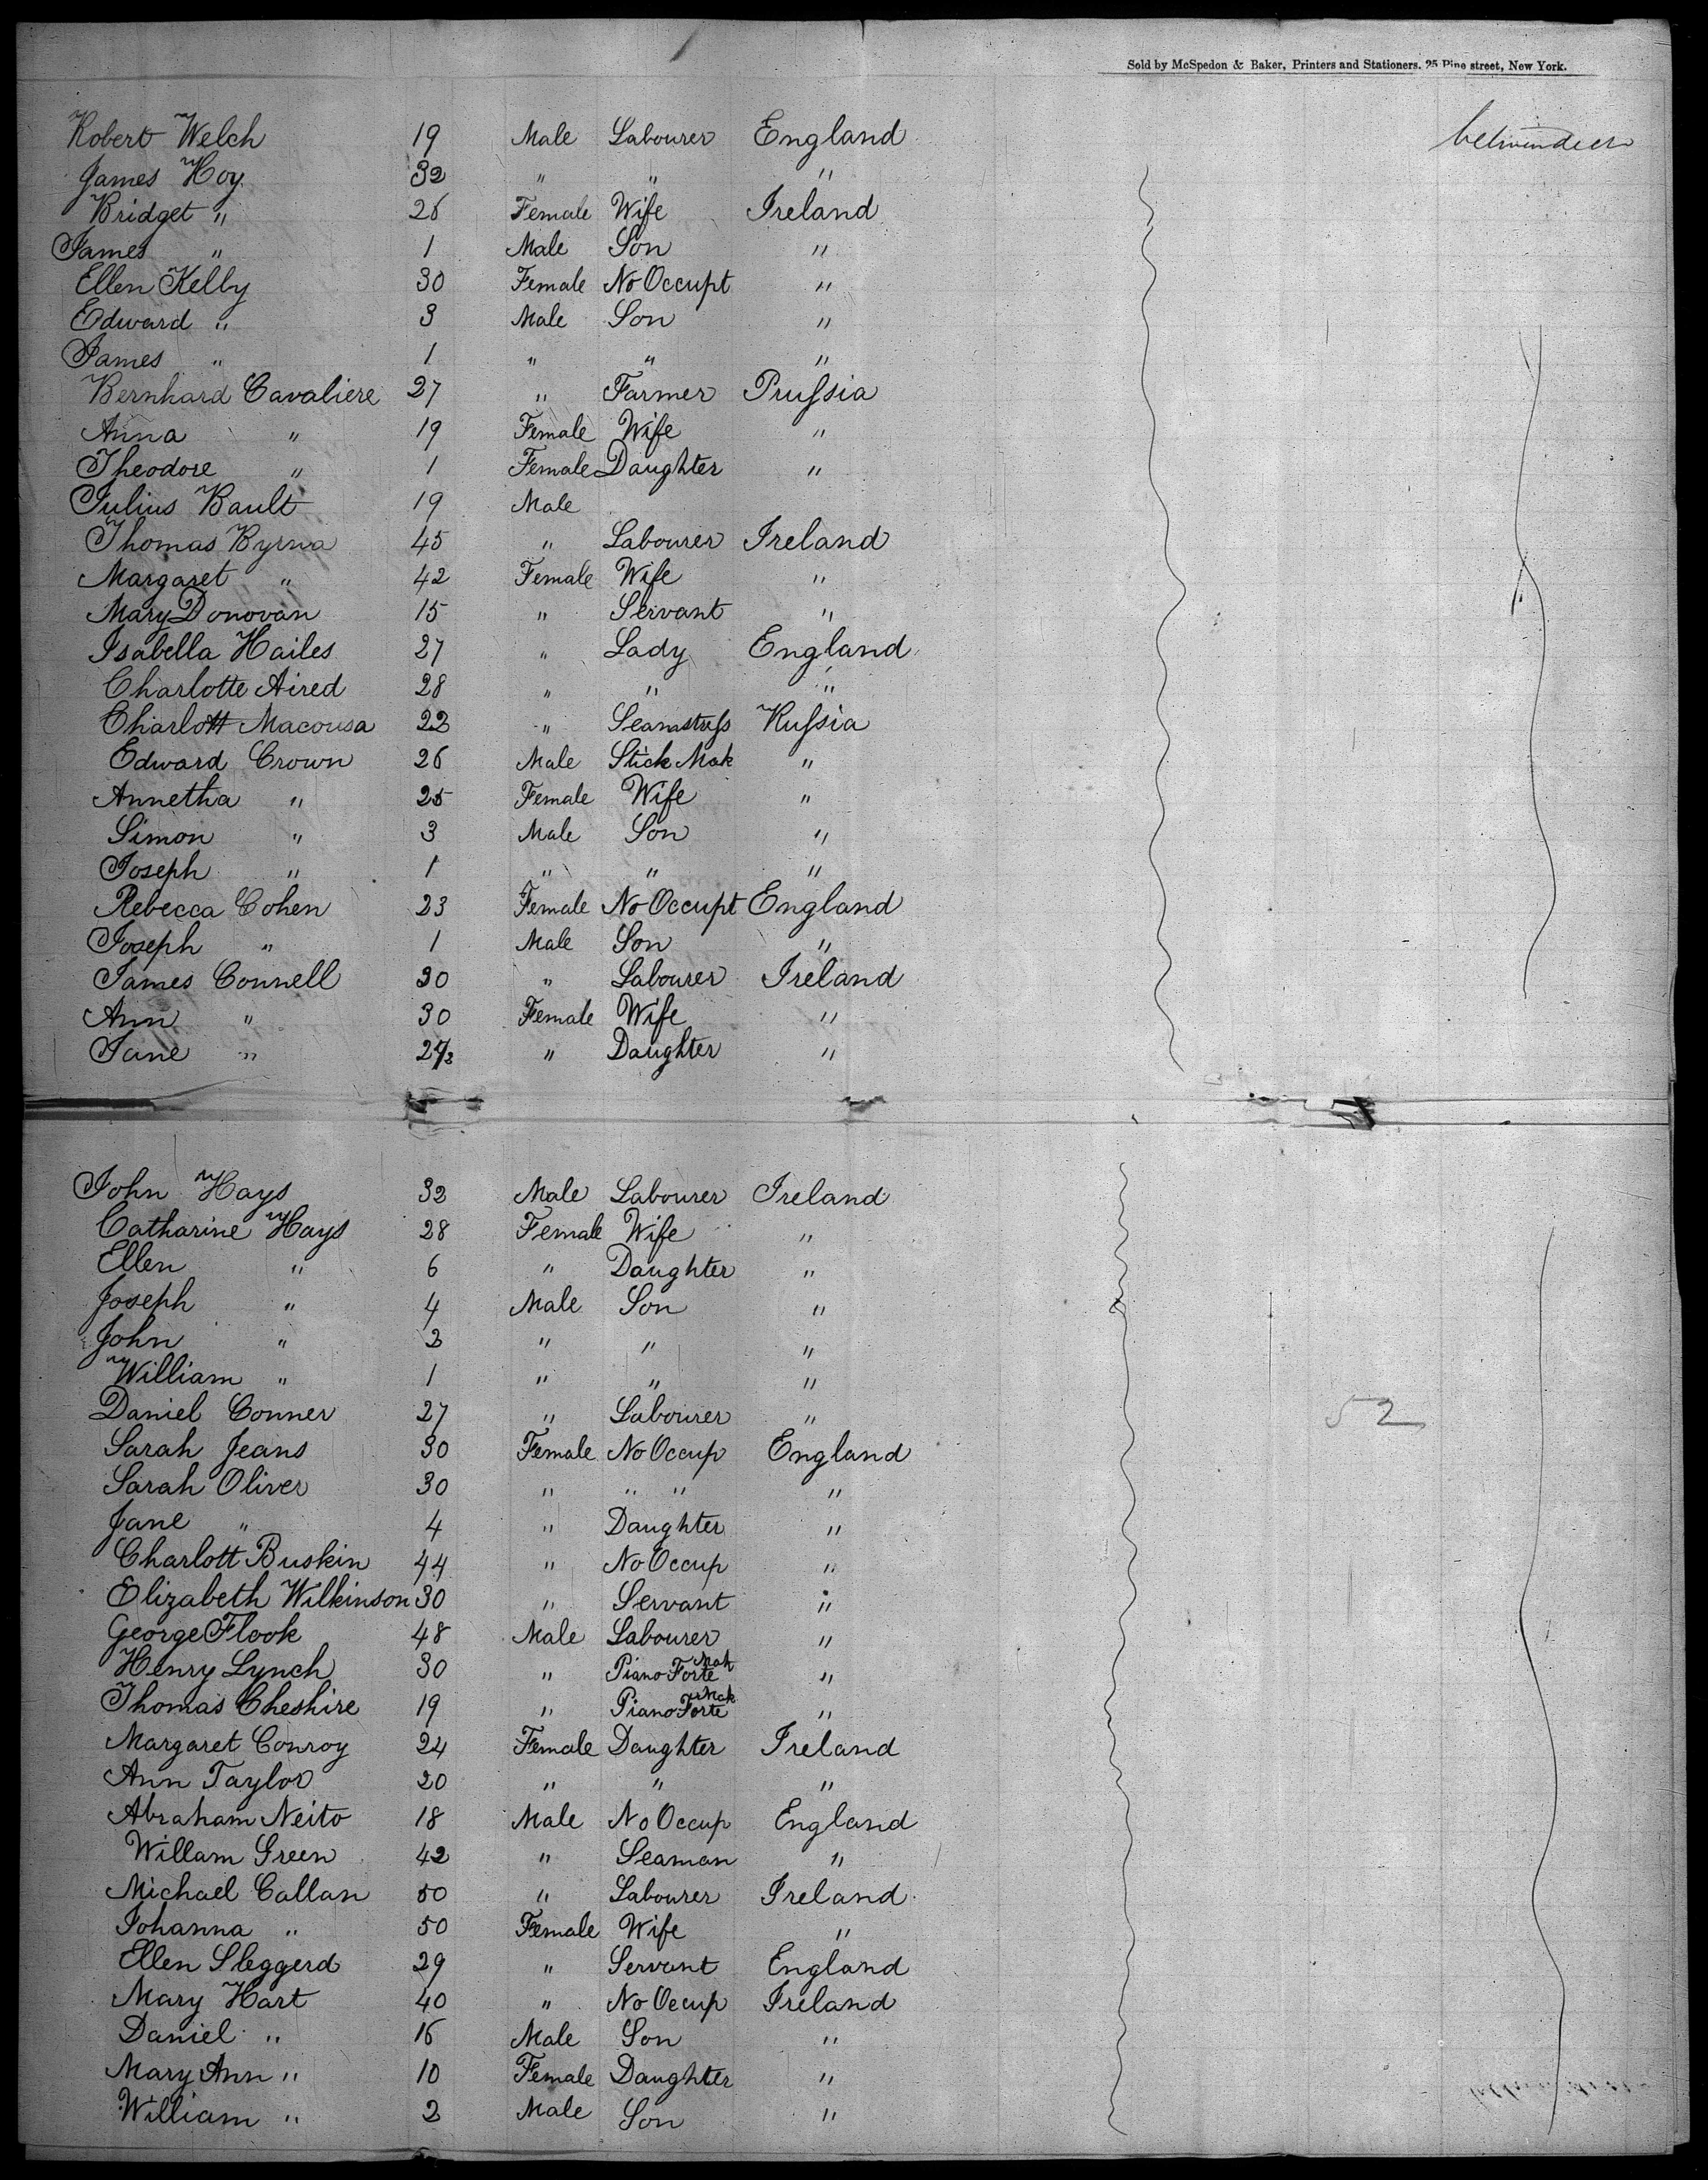 Sold by McSpedon & Baker, Printers and Stationers, 25 Pine street, New York.
Robert Welch 19 Male Labourer England
James Hoy 32 " " "
Bridget " 26 Female Wife Ireland
James " 1 Male Son "
Ellen Kelly 30 Female No Occupt "
Edward " 3 Male Son "
James " 1 " " "
Bernhard Cavaliere 27 " Farmer Prussia
Anna " 19 Female Wife "
Theodore " 1 Female Daughter "
Julius Bault 19 Male
Thomas Byrna 45 " Labourer Ireland
Margaret " 42 Female Wife "
Mary Donovan 15 " Servant "
Isabella Hailes 27 " Lady England
Charlotte Aired 28 " " "
Charlott Macousa 22 " Seamstress Russia
Edward Crown 26 Male Stick Mak "
Annetha " 25 Female Wife "
Simon " 3 Male Son "
Joseph " 1 " " "
Rebecca Cohen 23 Female No Occupt England
Joseph " 1 Male Son "
James Connell 30 " Labourer Ireland
Ann " 30 Female Wife "
Jane " " Daughter "
John Hays 32 Male Labourer Ireland
Catharine Hays 28 Female Wife "
Ellen " 6 " Daughter "
Joseph " 4 Male Son "
John " 2 " " "
William " 1 " " "
Daniel Conner 27 " Labourer "
52
Sarah Jeans 30 Female No Occup England
Sarah Oliver 30 " " " "
Jane " 4 " Daughter "
Charlott Buskin 44 " No Occup "
Elizabeth Wilkinson 30 " Servant "
George Flook 48 Male Labourer "
Henry Lynch 30 " Piano Forte Mak "
Thomas Cheshire 19 " Piano Forte Mak "
Margaret Conroy 24 Female Daughter Ireland
Ann Taylor 20 " " "
Abraham Neito 18 Male No Occup England
Willam Green 42 " Seaman "
Michael Callan 50 " Labourer Ireland
Johanna " 50 Female Wife "
Ellen Sleggerd 29 " Servant England
Mary Hart 40 " No Occup Ireland
Daniel " 16 Male Son "
Mary Ann " 10 Female Daughter "
William " 2 Male Son "